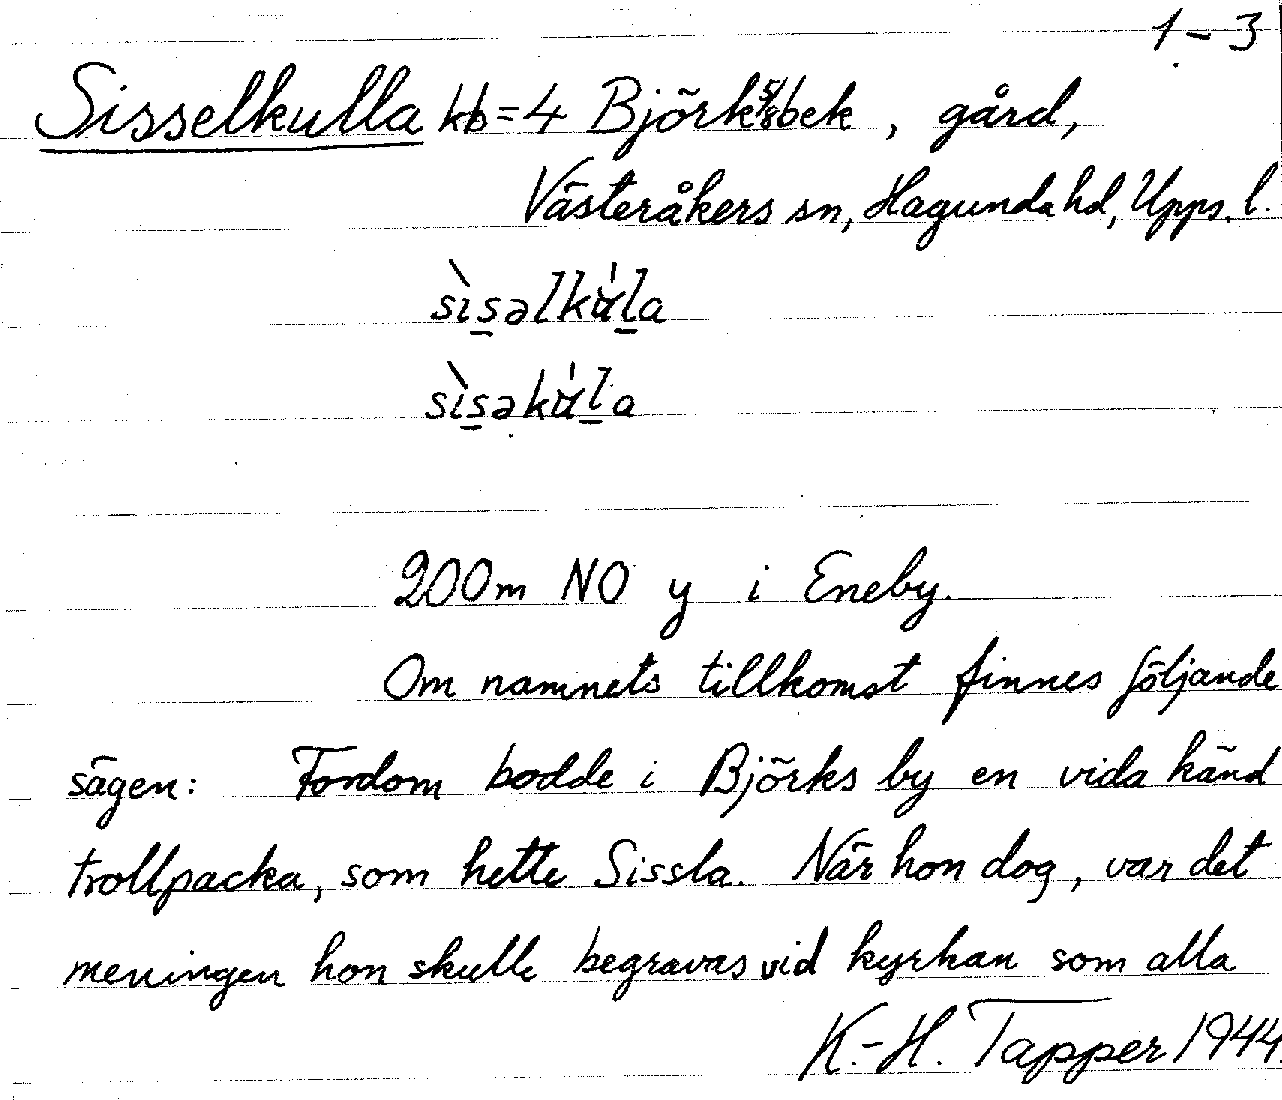 1-3
Sisselkulla kb=4 Björks/8bek, gård,
Västeråkers sn, Hagunda hd, Upps. l.
200m NO y i Eneby.
Om namnets tillkomst finnes följande
sägen: Fordom bodde i Björks by en vida känd
trollpacka, som hette Sissla. När hon dog, var det
meningen hon skulle begravas vid kyrkan som alla
K.-H. Tapper 1944.